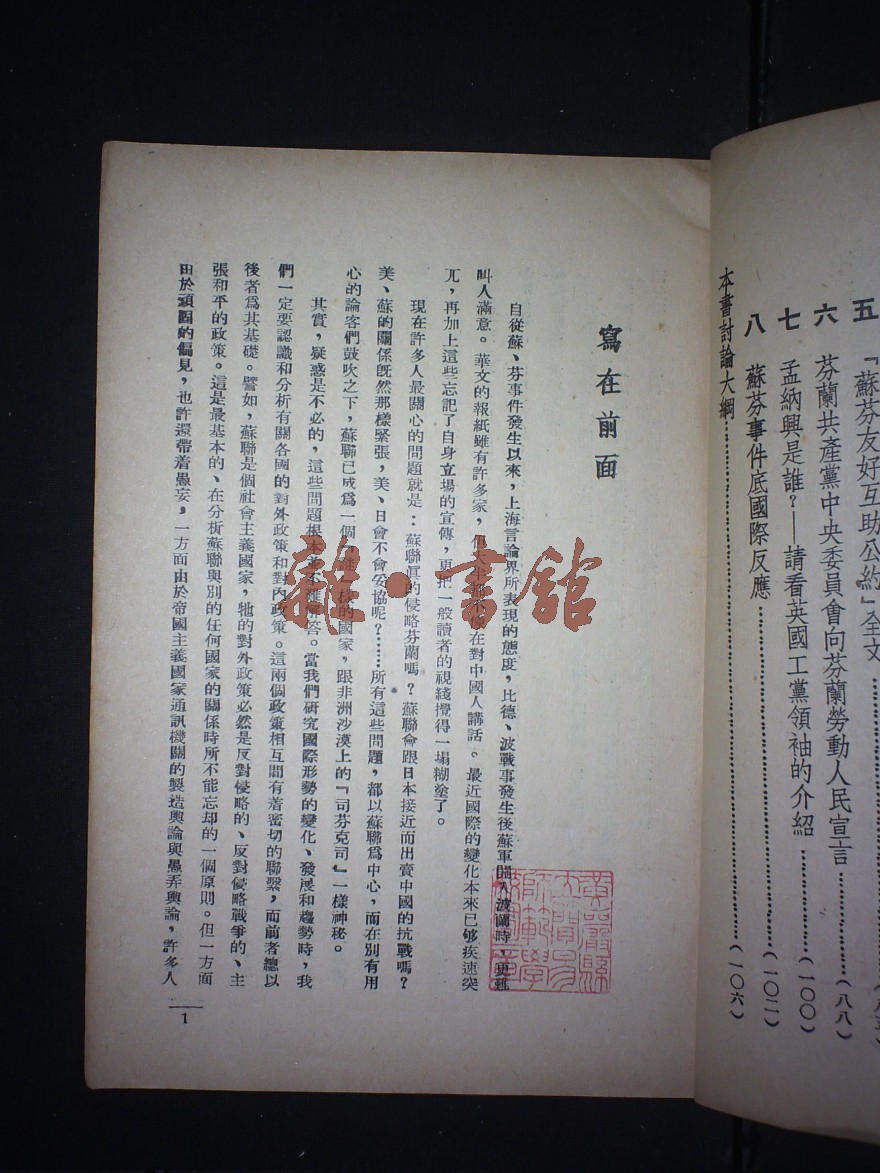 五 「蘇芬友好互助公約」全文
六 芬蘭共產黨中央委員會向芬蘭勞動人民宣言……(八八)
七 孟納興是誰？——請看英國工黨領袖的介紹……(一〇〇)
八 蘇芬事件底國際反應……(一〇二)
本書討論大綱……(一〇六)
寫在前面
自從蘇、芬事件發生以來，上海言論界所表現的態度，比德、波戰事發生後蘇軍開入波蘭時，更難
叫人滿意。華文的報紙雖有許多家，但大半都不像在對中國人講話。最近國際的變化本來已够疾速突
兀，再加上這些忘記了自身立場的宣傳，更把一般讀者的視綫攪得一塌糊塗了。
現在許多人最關心的問題就是：蘇聯眞的侵略芬蘭嗎？蘇聯會跟日本接近而出賣中國的抗戰嗎？
美、蘇的關係旣然那樣緊張，美、日會不會妥協呢？……所有這些問題，都以蘇聯爲中心，而在別有用
心的論客們鼓吹之下，蘇聯已成爲一個謎樣的國家，跟非洲沙漠上的「司芬克司」一樣神秘。
其實，疑惑是不必的，這些問題根本並不難解答。當我們研究國際形勢的變化、發展和趨勢時，我
們一定要認識和分析有關各國的對外政策和對內政策。這兩個政策相互間有着密切的聯繫，而前者總以
後者爲其基礎。譬如，蘇聯是個社會主義國家，牠的對外政策必然是反對侵略的、反對侵略戰爭的、主
張和平的政策。這是最基本的、在分析蘇聯與別的任何國家的關係時所不能忘却的一個原則。但一方面
由於頑固的偏見，也許還帶着愚妄，一方面由於帝國主義國家通訊機關的製造輿論與愚弄輿論，許多人
1
雜·書館